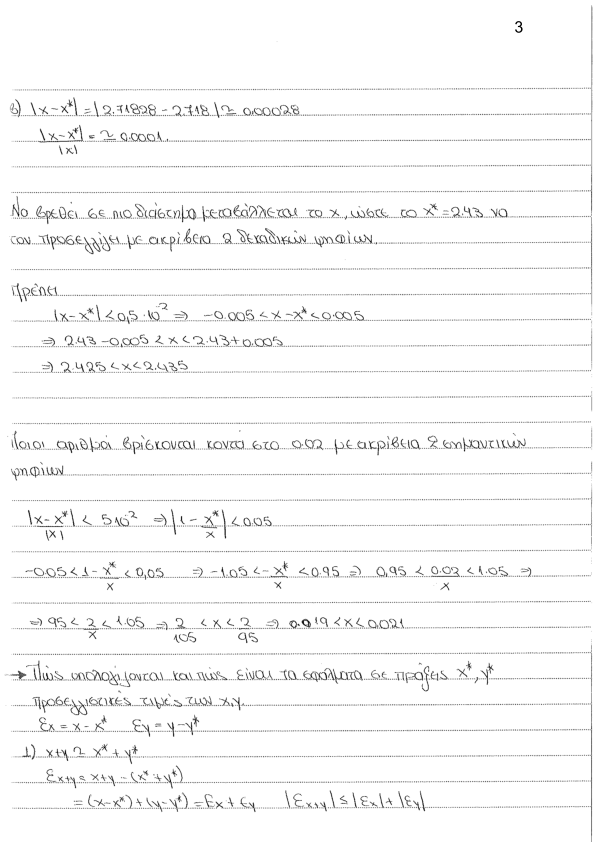 3
β) |x-x*| = |2.71828 - 2.718| ≃ 0.00028
|x-x*|/|x| = ≃ 0.0001.
Να βρεθεί σε πιο διάστημα μεταβάλλεται το x, ώστε το x* = 2.43 να
τον προσεγγίζει με ακρίβεια 2 δεκαδικών ψηφίων.
Πρέπει
|x-x*| < 0,5·10^-2 ⇒ -0.005 < x-x* < 0.005
⇒ 2.43 - 0,005 < x < 2.43 + 0.005
⇒ 2.425 < x < 2.435
Ποιοι αριθμοί βρίσκονται κοντά στο 0.02 με ακρίβεια 2 σημαντικών
ψηφίων
|x-x*|/|x| < 5 10^-2 ⇒ |1 - x*/x| < 0.05
-0.05 < 1 - x*/x < 0,05 ⇒ -1.05 < -x*/x < 0.95 ⇒ 0,95 < 0.02/x < 1.05 ⇒
⇒ 95 < 2/x < 1.05 ⇒ 2/105 < x < 2/95 ⇒ 0.019 < x < 0.021
→ Πώς υπολογίζονται και πώς είναι τα σφάλματα σε πράξεις x*, y*
προσεγγιστικές τιμές των x,y.
Εx = x - x* Εy = y - y*
1) x+y ≃ x* + y*
Εx+y = x+y - (x* + y*)
= (x-x*) + (y-y*) = Εx + Εy |Εx+y| ≤ |Εx| + |Εy|